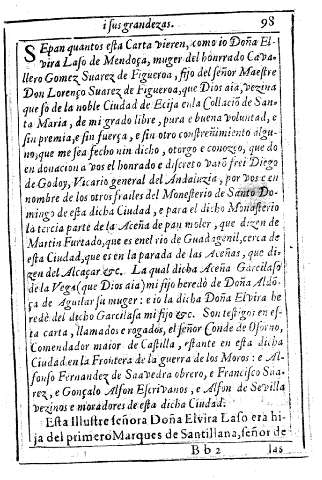 i sus grandezas. 98
SEpan quantos esta Carta vieren, como io Doña El-
vira Laso de Mendoça, muger del honrrado Cava-
llero Gomez Suarez de Figueroa, fijo del señor Maestre
Don Lorenço Suarez de Figueroa, que Dios aia, vezina
que só de la noble Ciudad de Ecija en la Collació de San-
ta Maria, de mi grado libre, pura e buena voluntad, e
sin premia, e sin fuerça, e sin otro constreñimiento algu-
no, que me sea fecho nin dicho, otorgo e conozco, que do
en donacion a vos el honrado e discreto varó frei Diego
de Godoy, Vicario general del Andaluzia, por vos e en
nombre de los otros frailes del Monesterio de Santo Do-
mingo de esta dicha Ciudad, e para el dicho Monasterio
la tercia parte de la Aceña de pan moler, que dizen de
Martin Furtado, que es en el rio de Guadagenil, cerca de
esta Ciudad, que es en la parada de las Aceñas, que di-
zen del Alcaçar &c. La qual dicha Aceña Garcilaso
de la Vega (que Dios aia) mi fijo heredò de Doña Aldó-
ça de Aguilar su muger: e io la dicha Doña Elvira he
redè del dicho Garcilasa mi fijo &c. Son testigos en es-
ta carta, llamados e rogados, el señor Conde de Osorno,
Comendador maior de Castilla, estante en esta dicha
Ciudad en la Frontera de la guerra de los Moros: e Al-
fonso Fernandez de Saavedra obrero, e Francisco Sua-
rez, e Gonçalo Alfon Escrivanos, e Alfon de Sevilla
vezinos e moradores de esta dicha Ciudad.
Esta Illustre señora Doña Elvira Laso era hi-
ja del primero Marques de Santillana, señor de
B b 2 las